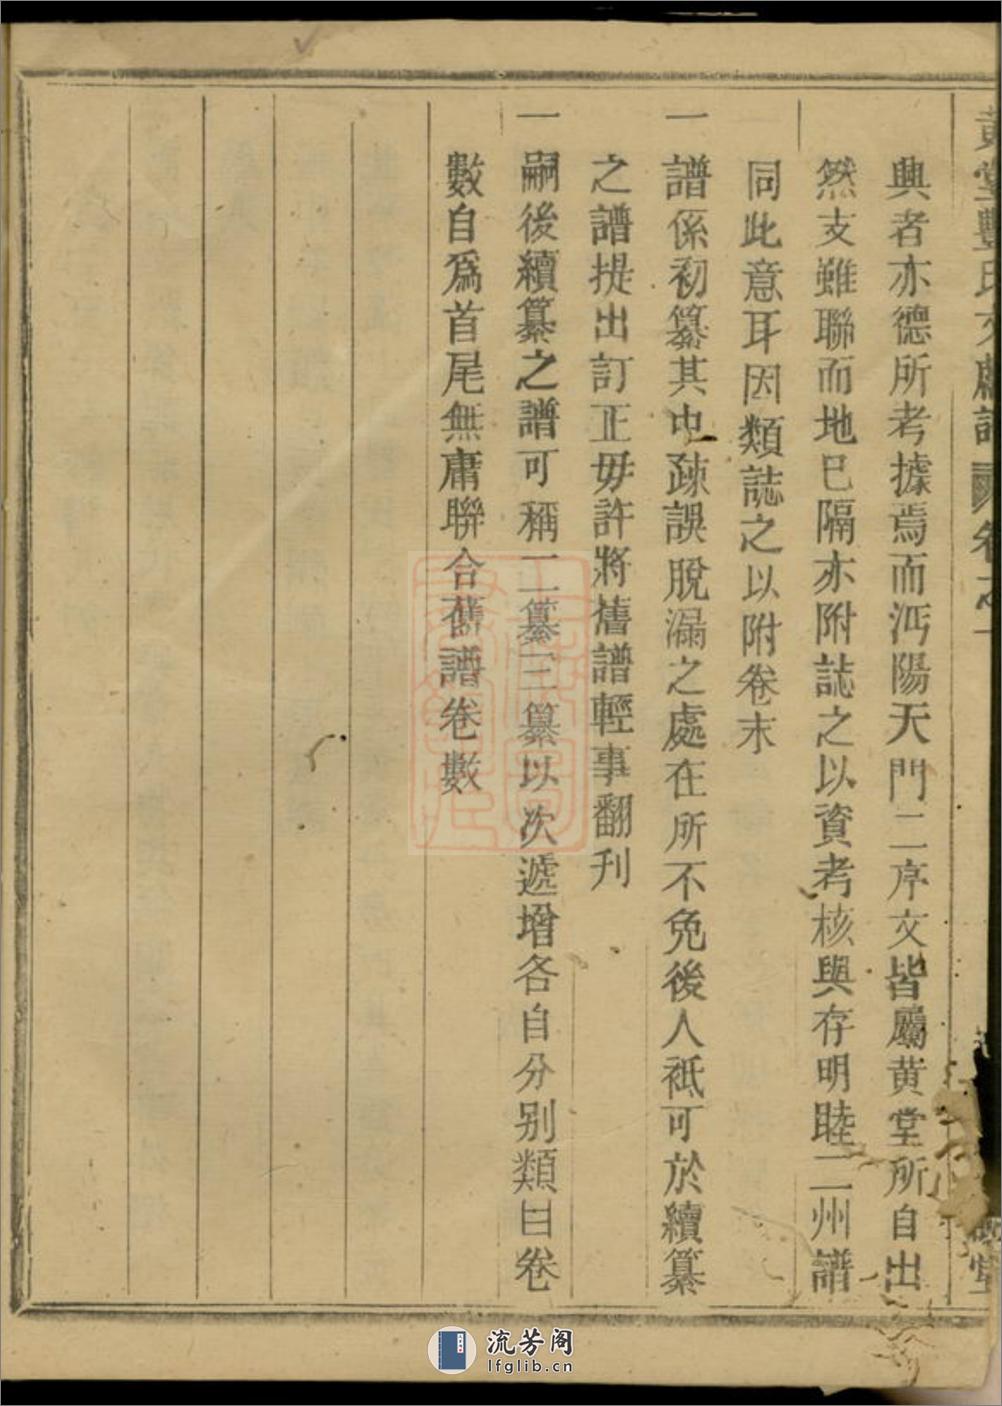 黄堂豐氏文獻譜 卷之一
興者亦德所考據焉而沔陽天門二序文皆屬黄堂所自出
然支雖聯而地已隔亦附誌之以資考核與存明睦二州譜
同此意耳因類誌之以附卷末
一譜係初纂其中疎誤脫漏之處在所不免後人祗可於續纂
之譜提出訂正毋許將舊譜輕事翻刊
一嗣後續纂之譜可稱二纂三纂以次遞增各自分别類曰卷
數自爲首尾無庸聯合舊譜卷數
流芳阁
lfglib.cn